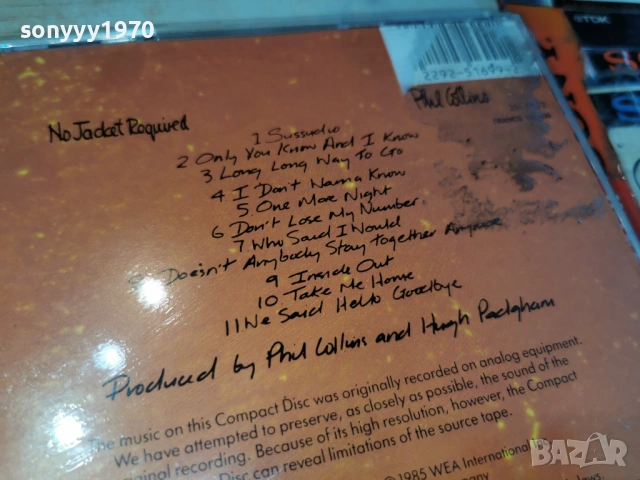 sonyyy1970
TDK
2292-51699-2
No Jacket Required
Phil Collins
1 Sussudio
2 Only You Know And I Know
3 Long Long Way To Go
4 I Don't Wanna Know
5 One More Night
6 Don't Lose My Number
7 Who Said I Would
8 Doesn't Anybody Stay Together Anymore
9 Inside Out
10 Take Me Home
11 We Said Hello Goodbye
Produced by Phil Collins and Hugh Padgham
The music on this Compact Disc was originally recorded on analog equipment.
We have attempted to preserve, as closely as possible, the sound of the
original recording. Because of its high resolution, however, the Compact
Disc can reveal limitations of the source tape.
©1985 WEA International
BAZAR